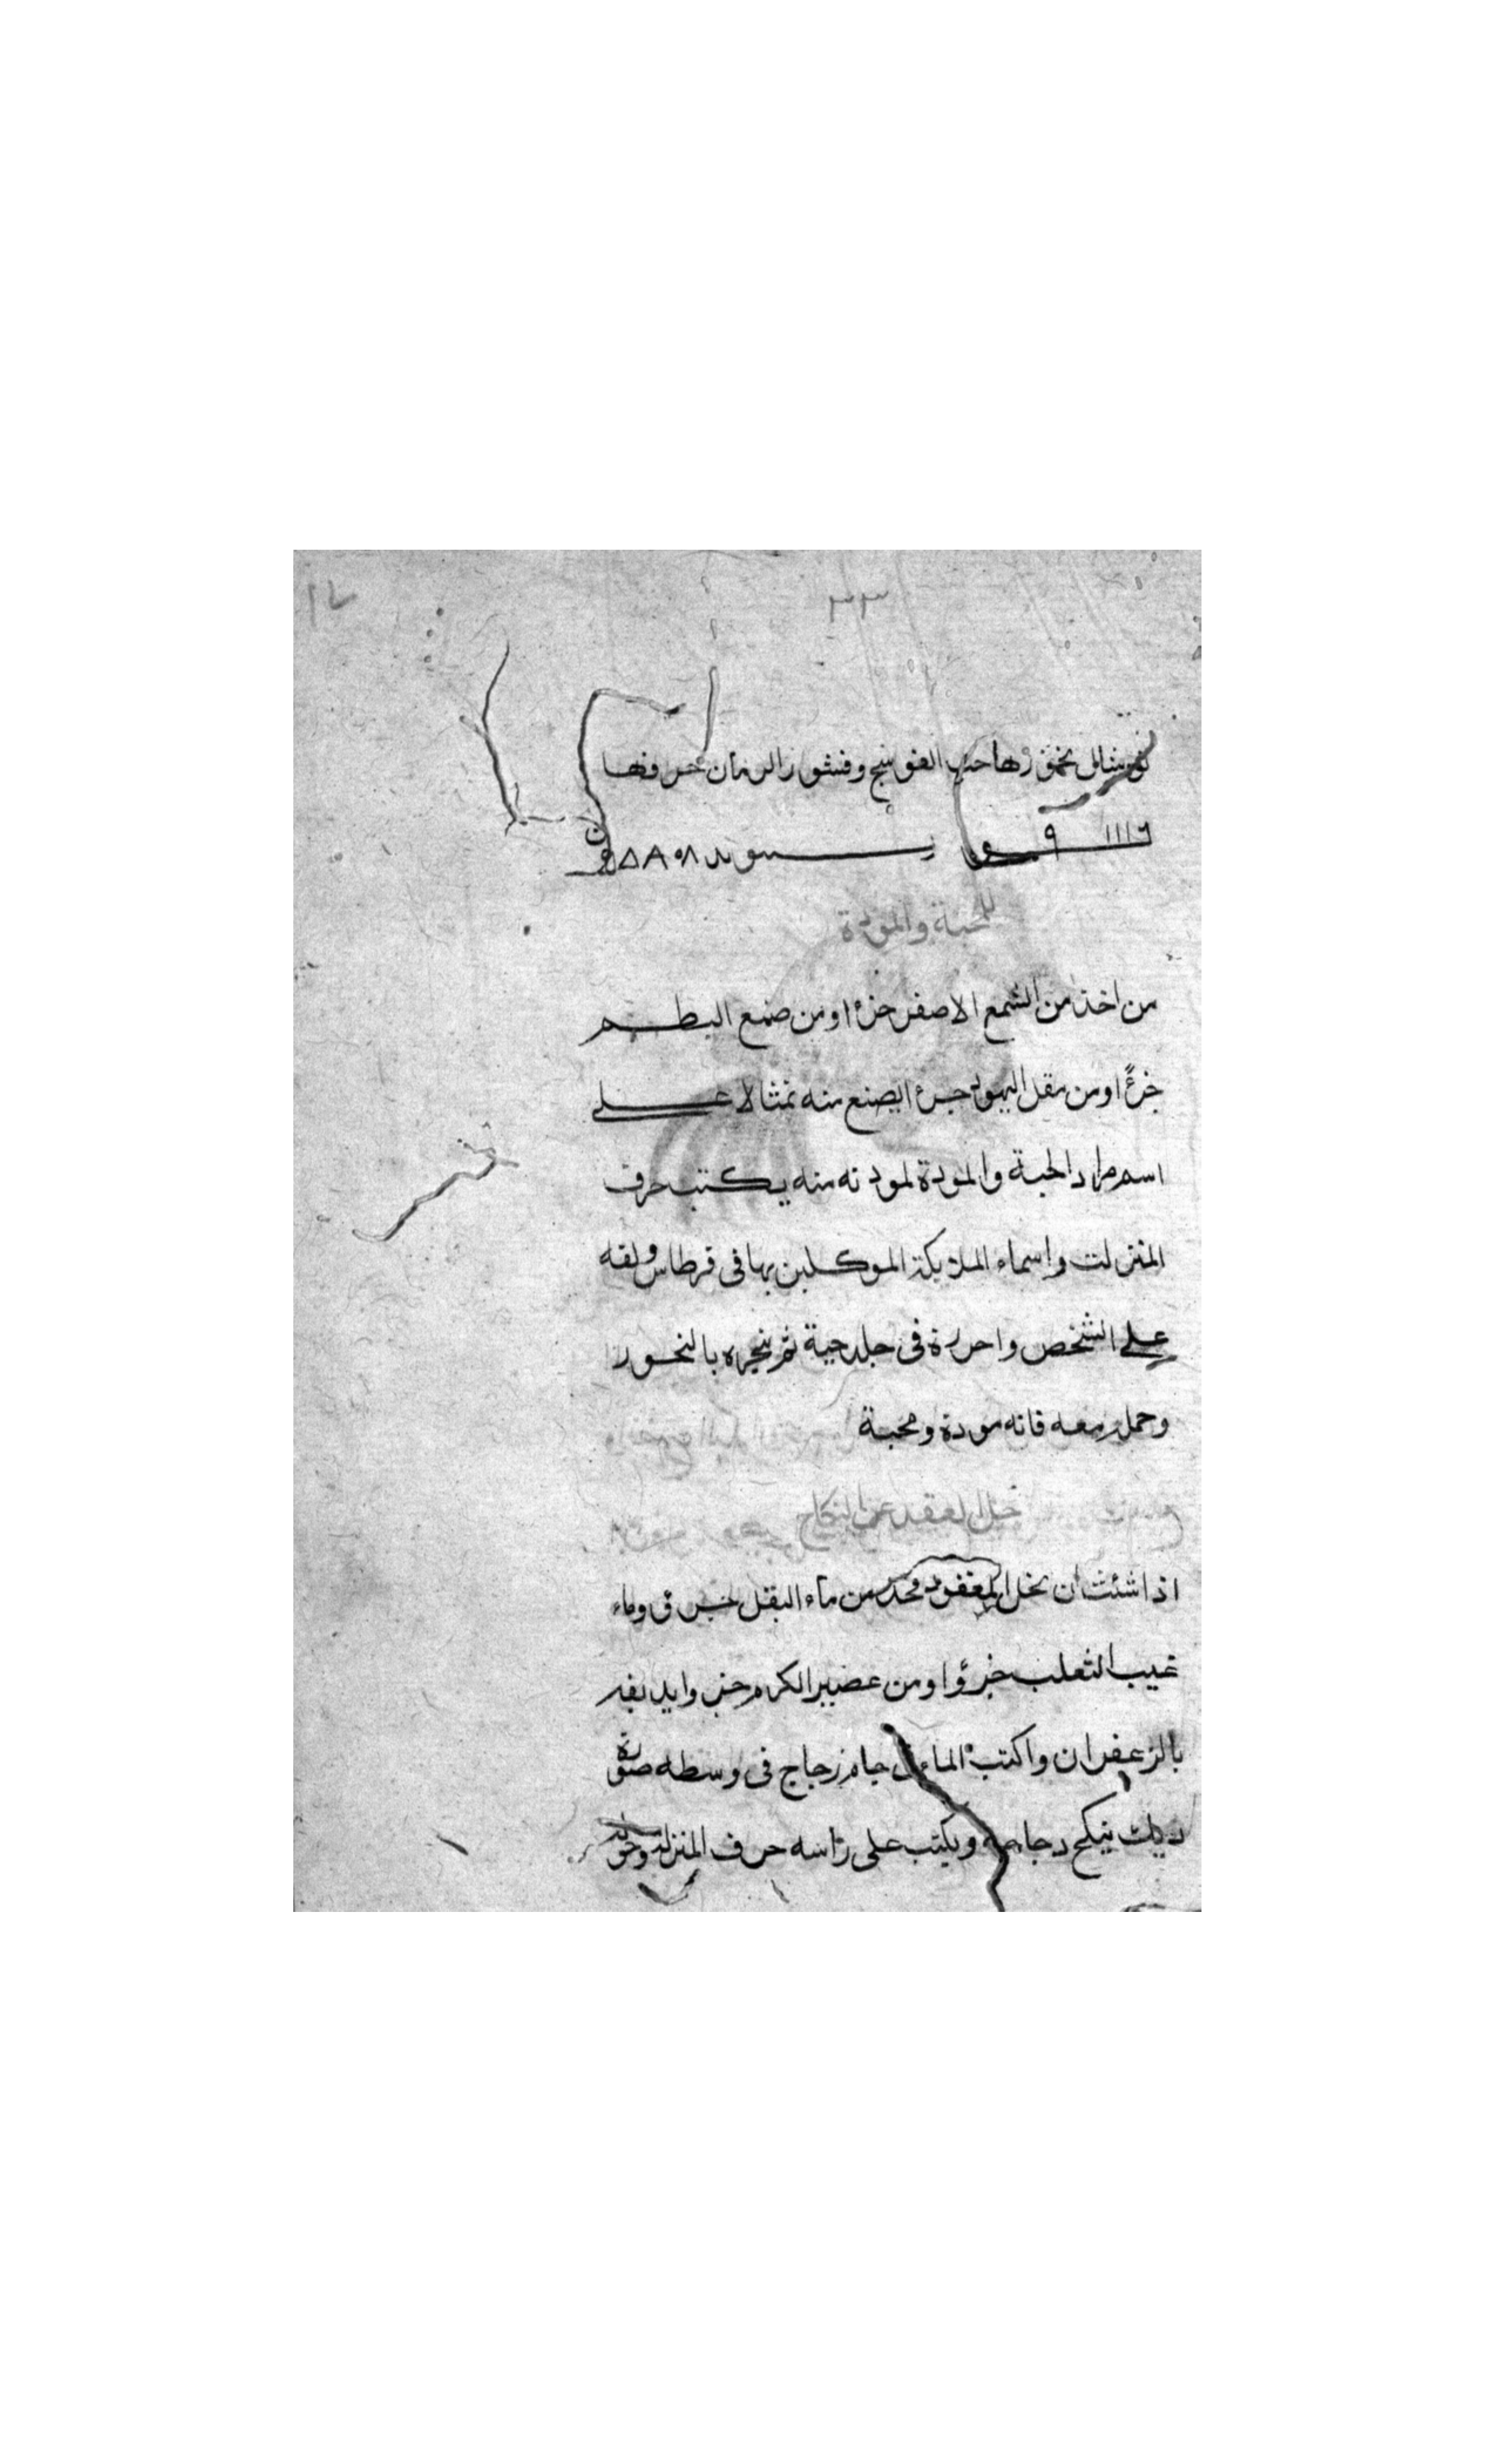 ٣٣
وقشور الرمان حروفها
للمحبة والمودة
من اخذ من الشمع الاصفر جزءا ومن صمغ البطم
جزءًا ومن مقل اليهود جزءا يصنع منه تمثالا على
اسم من اراد المحبة والمودة منه يكتب حرف
المنزلت واسماء الملايكة الموكلين بها فى قرطاس ولفه
على الشخص واحرزه فى جلد حية ثم بخره بالبخور
وحمله معه فانه مودة ومحبة
لحل العقد عن النكاح
اذا شئت ان تحل المعقود فخذ من ماء البقل جزء وماء
عنب الثعلب جزؤا ومن عصير الكرم جزوا
بالزعفران واكتب الماء فى جام زجاج فى وسطه صورة
ديك ينكح دجاجه ويكتب على راسه حرف المنزلت